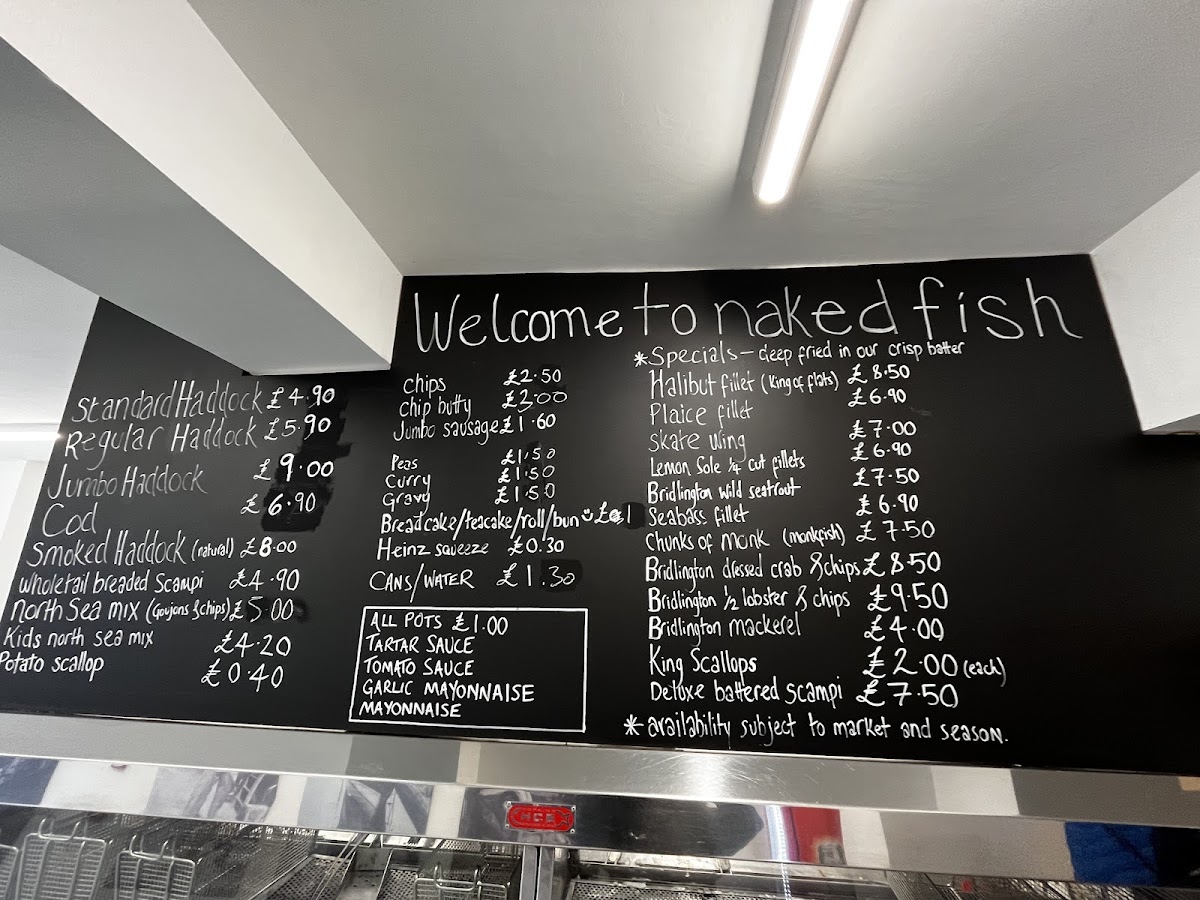 Welcome to naked fish
Standard Haddock £4.90
Regular Haddock £5.90
Jumbo Haddock £9.00
Cod £6.90
Smoked Haddock (natural) £8.00
wholetail breaded Scampi £4.90
North Sea mix (Goujons & chips) £5.00
Kids north sea mix £4.20
Potato scallop £0.40
Chips £2.50
Chip butty £3.00
Jumbo sausage £1.60
Peas £1.50
Curry £1.50
Gravy £1.50
Breadcake/teacake/roll/bun £1
Heinz squeeze £0.30
CANS/WATER £1.30
ALL POTS £1.00
TARTAR SAUCE
TOMATO SAUCE
GARLIC MAYONNAISE
MAYONNAISE
*Specials - deep fried in our crisp batter
Halibut fillet (King of flats) £8.50
Plaice fillet £6.90
Skate Wing £7.00
Lemon Sole 1/4 cut fillets £6.90
Bridlington wild seatrout £7.50
Seabass fillet £6.90
Chunks of Monk (monkfish) £7.50
Bridlington dressed crab & chips £8.50
Bridlington 1/2 lobster & chips £9.50
Bridlington mackerel £4.00
King Scallops £2.00 (each)
Deluxe battered scampi £7.50
*availability subject to market and season.